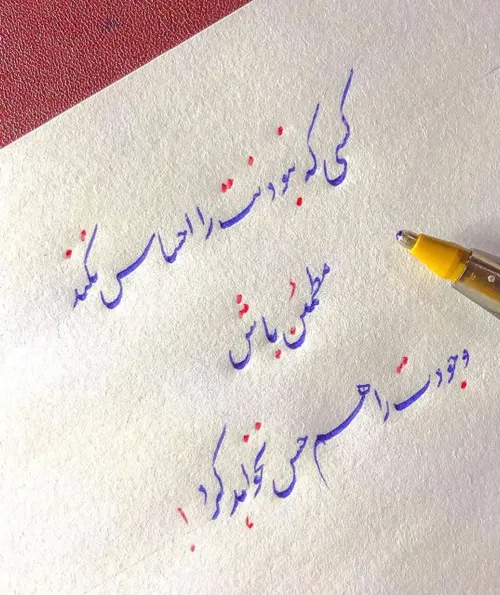 کسی که نبودنت را احساس نکند
مطمئن باش
وجودت را هم حس نخواهد کرد!